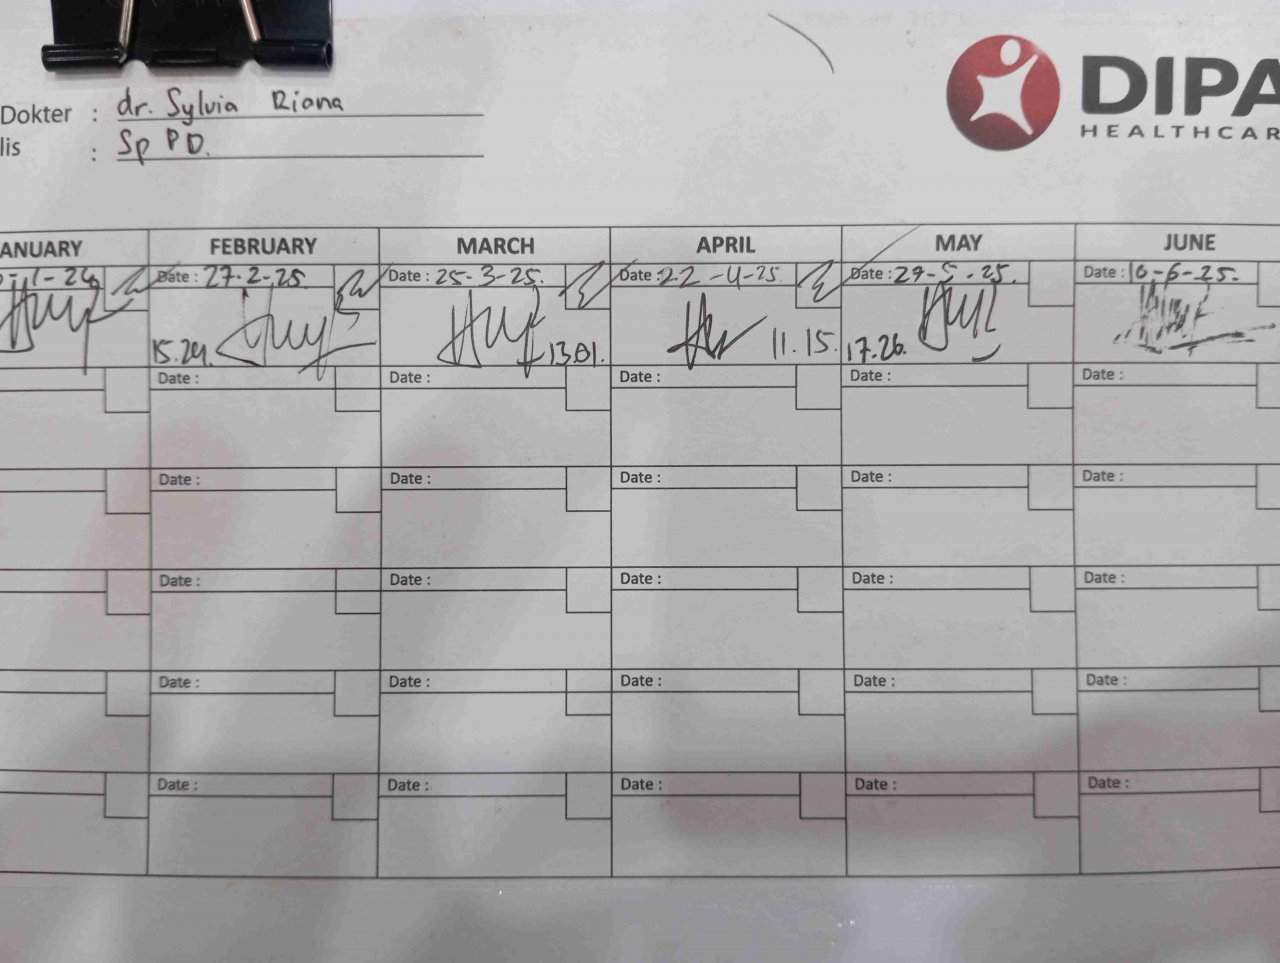 Dokter : dr. Sylvia Riana
lis : Sp PD.
DIPA
HEALTHCAR
ANUARY FEBRUARY MARCH APRIL MAY JUNE
Date : 27-2-25. Date : 25-3-25. Date : 22-4-25 Date : 29-5-25. Date : 10-6-25.
15.24. 13.01. 11.15. 17.26.
Date : Date : Date : Date : Date :
Date : Date : Date : Date : Date :
Date : Date : Date : Date : Date :
Date : Date : Date : Date : Date :
Date : Date : Date : Date : Date :